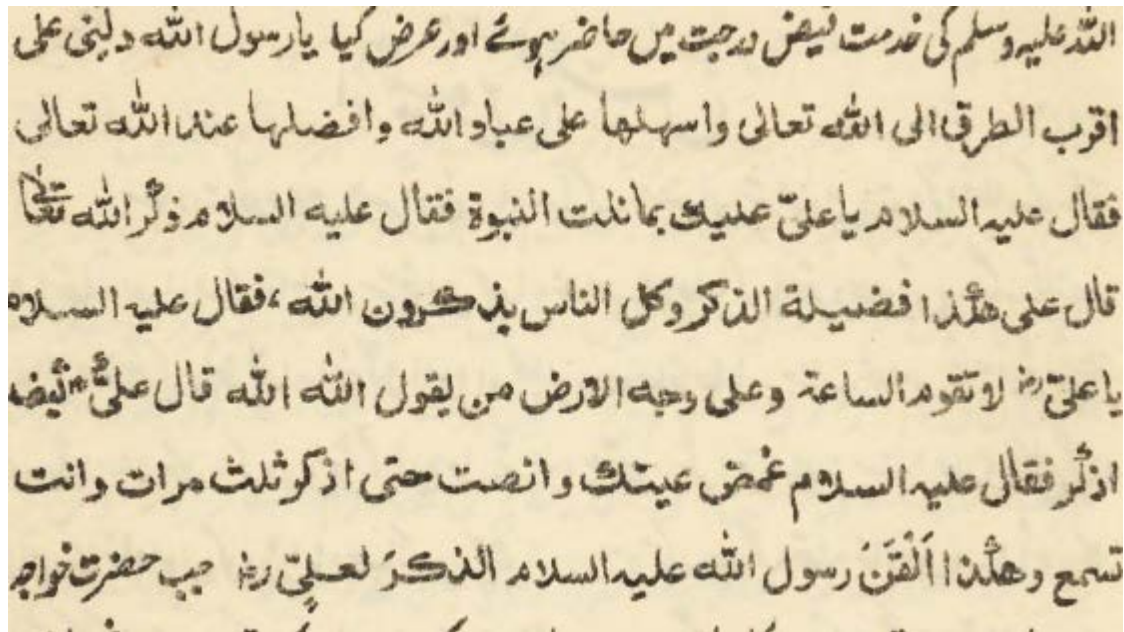 اللہ علیہ وسلم کی خدمت فیض درجت میں حاضر ہوئے اور عرض کیا یا رسول اللہ دلنی علی
اقرب الطرق الی اللہ تعالی واسہلہا علی عباد اللہ وافضلہا عند اللہ تعالی
فقال علیہ السلام یا علیّ علیک بما نلت النبوة فقال علیہ السلام ذکر اللہ تعالیٰ
قال علی ھٰذا فضیلة الذکر وکل الناس یذکرون اللہ، فقال علیہ السلام
یا علیّ رض لا تقوم الساعة وعلی وجہ الارض من یقول اللہ اللہ قال علیّ
اذکر فقال علیہ السلام غمض عینک وانصت حتی اذکر ثلث مرات وانت
تسمع وھٰذا اَلْقَنَ رسول اللہ علیہ السلام الذکرَ لعلیّ رض جب حضرت خواجہ